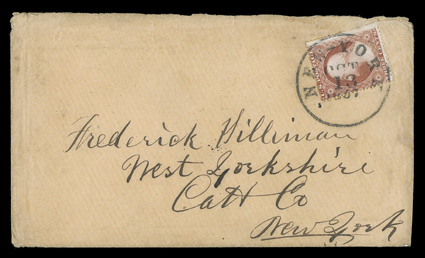 NEW-YORK
OCT
13
1857
Frederick Hilliman
West Yorkshire
Catt Co
New York